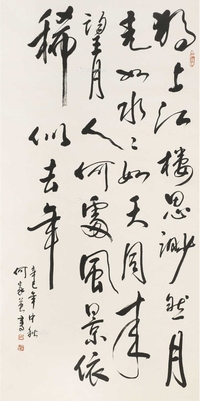 独上江楼思渺然月
光如水々如天同来
望月人何處風景依
稀似去年
辛巳年中秋
何家英書